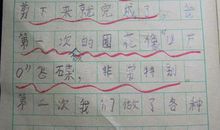 剪下来就完成了。
第一次的图花像“UF
0”飞碟，非常特别。
第一次我们做了各种